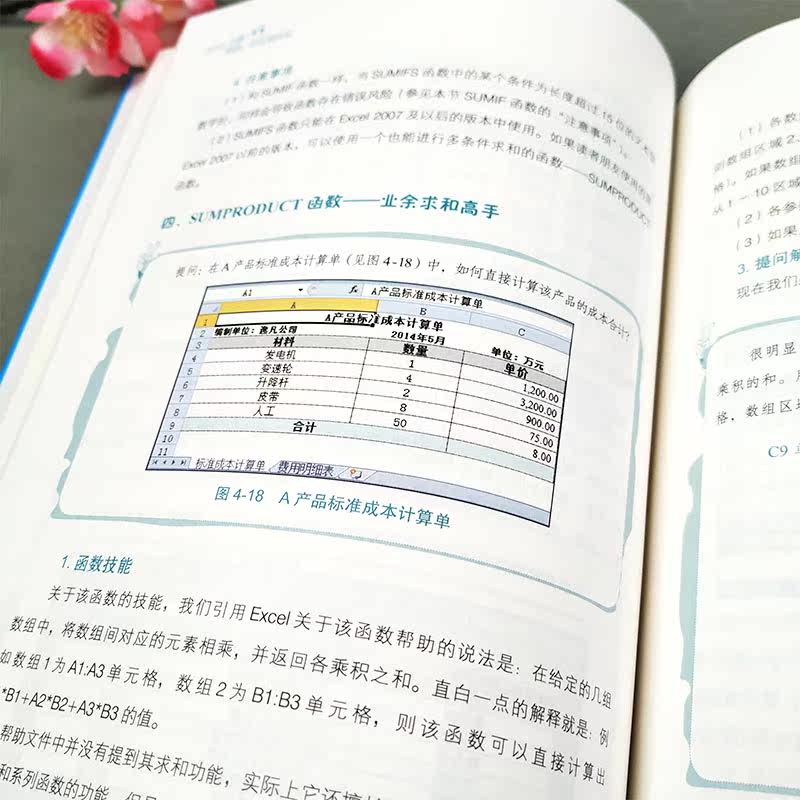 4. 注意事项
（1）和 SUMIF 函数一样，当 SUMIFS 函数中的某个条件为长度超过 15 位的文本型
数字时，同样会导致函数存在错误风险（参见本节 SUMIF 函数的“注意事项”）。
（2）SUMIFS 函数只能在 Excel 2007 及以后的版本中使用。如果读者朋友使用的是
Excel 2007 以前的版本，可以使用一个也能进行多条件求和的函数——SUMPRODUCT
函数。
四、SUMPRODUCT 函数——业余求和高手
提问：在 A 产品标准成本计算单（见图 4-18）中，如何直接计算该产品的成本合计？
A1 fx A产品标准成本计算单
A B C
1 A产品标准成本计算单
2 编制单位：逸凡公司 2014年5月 单位：万元
3 材料 数量 单价
4 发电机 1 1,200.00
5 变速轮 4 3,200.00
6 升降杆 2 900.00
7 皮带 8 75.00
8 人工 50 8.00
9 合计
10
11
标准成本计算单 费用明细表
图 4-18 A 产品标准成本计算单
1. 函数技能
关于该函数的技能，我们引用 Excel 关于该函数帮助的说法是：在给定的几组
数组中，将数组间对应的元素相乘，并返回各乘积之和。直白一点的解释就是：例
如数组 1 为 A1:A3 单元格，数组 2 为 B1:B3 单元格，则该函数可以直接计算出
*B1+A2*B2+A3*B3 的值。
帮助文件中并没有提到其求和功能，实际上它还
和系列函数的功能，但
（1）各数
则数组区域 2、
格）。如果数组
从 1～10 区域
（2）各参
（3）如果
3. 提问解
现在我们
很明显
乘积的和。
格，数组区域
C9